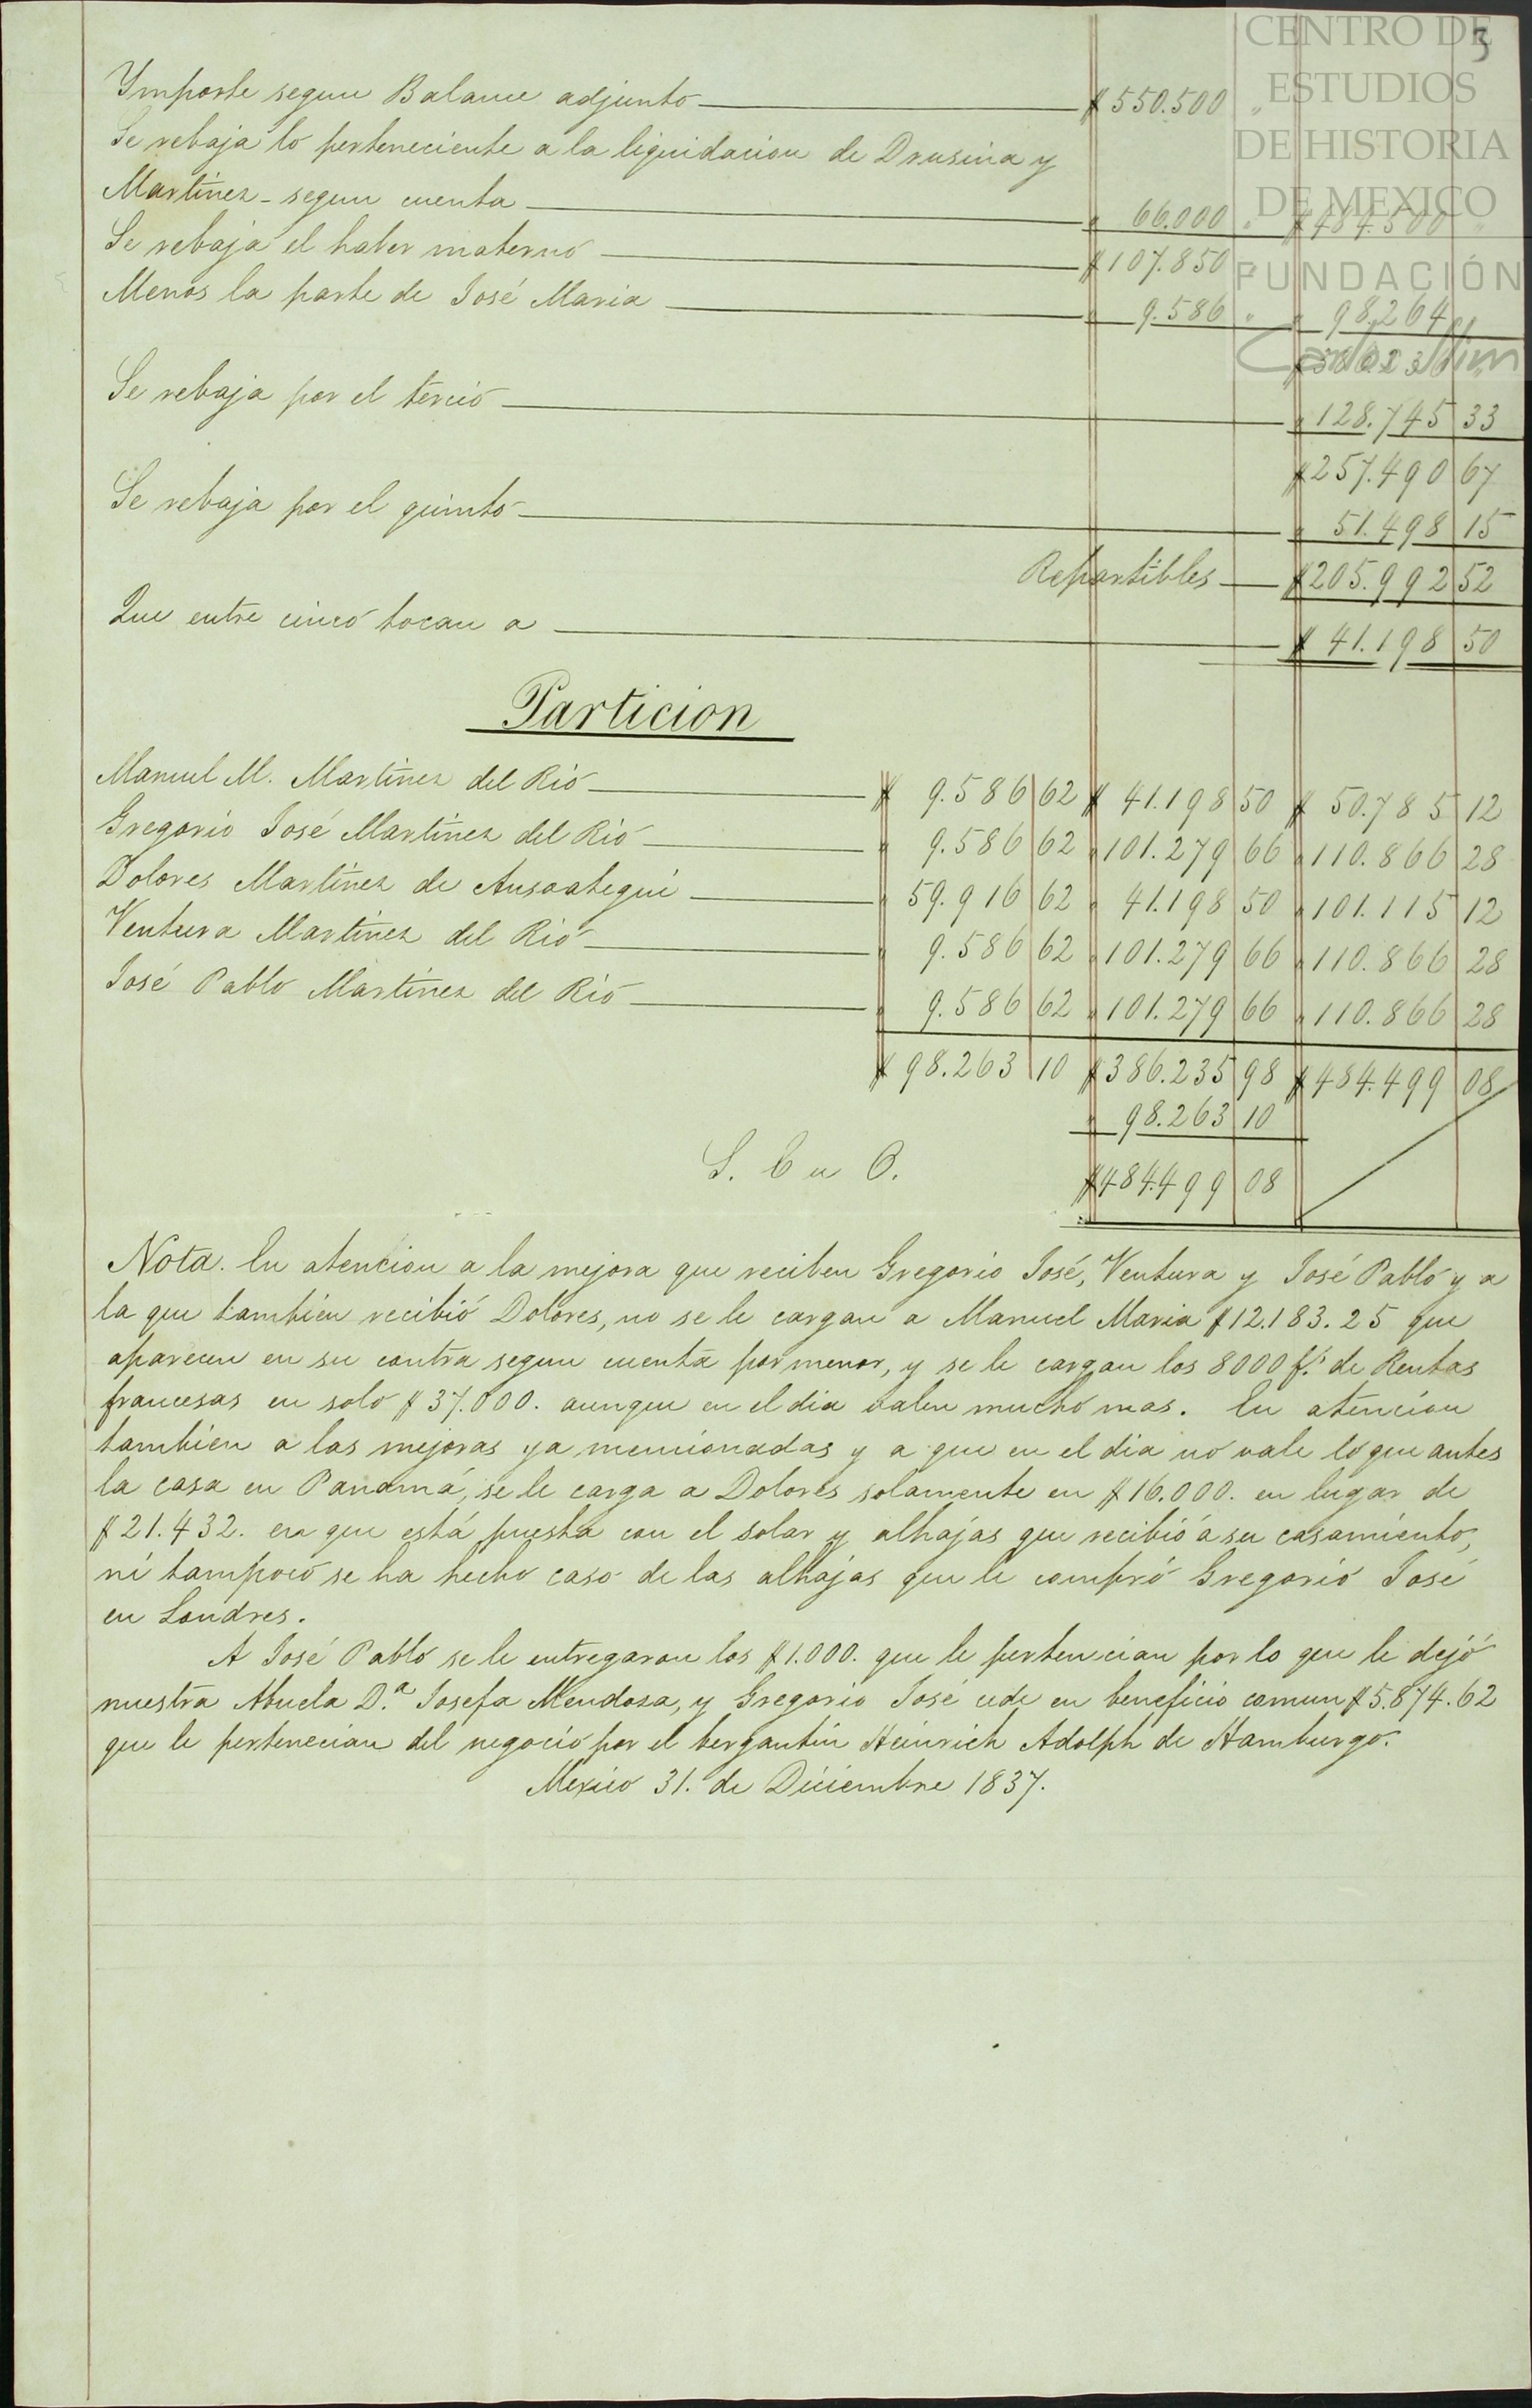 CENTRO DE
ESTUDIOS
DE HISTORIA
DE MEXICO
FUNDACIÓN
Carlos Slim
3
Ymporte segun Balance adjunto $ 550.500 "
Se rebaja lo perteneciente a la liquidacion de Drusina y
Martinez - segun cuenta " 66.000 " $ 484.500 "
Se rebaja el haber materno $ 107.850 "
Menos la parte de José Maria " 9.586 " " 98.264 "
$ 386.236 "
Se rebaja por el tercio " 128.745 33
$ 257.490 67
Se rebaja por el quinto " 51.498 15
Repartibles $ 205.992 52
Que entre cinco tocan a $ 41.198 50
Particion
Manuel M. Martinez del Rio $ 9.586 62 $ 41.198 50 $ 50.785 12
Gregorio José Martinez del Rio " 9.586 62 " 101.279 66 " 110.866 28
Dolores Martinez de Ansoategui " 59.916 62 " 41.198 50 " 101.115 12
Ventura Martinez del Rio " 9.586 62 " 101.279 66 " 110.866 28
José Pablo Martinez del Rio " 9.586 62 " 101.279 66 " 110.866 28
$ 98.263 10 $ 386.235 98 $ 484.499 08
" 98.263 10
S. E u O. $ 484.499 08
Nota. En atencion a la mejora que reciben Gregorio José, Ventura y José Pablo y a
la que tambien recibió Dolores, no se le cargan a Manuel Maria $ 12.183.25 que
aparecen en su contra segun cuenta por menor, y se le cargan los 8000 f.s de Rentas
francesas en solo $ 37.000. aunque en el dia valen mucho mas. En atencion
tambien a las mejoras ya mencionadas y a que en el dia no vale lo que antes
la casa en Panamá, se le carga a Dolores solamente en $ 16.000. en lugar de
$ 21.432. en que está puesta con el solar y alhajas que recibió á su casamiento,
ni tampoco se ha hecho caso de las alhajas que le compró Gregorio José
en Londres.
A José Pablo se le entregaron los $ 1.000. que le pertencian por lo que le dejó
nuestra Abuela D.a Josefa Mendoza, y Gregorio José cede en beneficio comun $ 5.874.62
que le pertenecian del negocio por el bergantin Heinrich Adolph de Hamburgo.
Mexico 31. de Diciembre 1837.